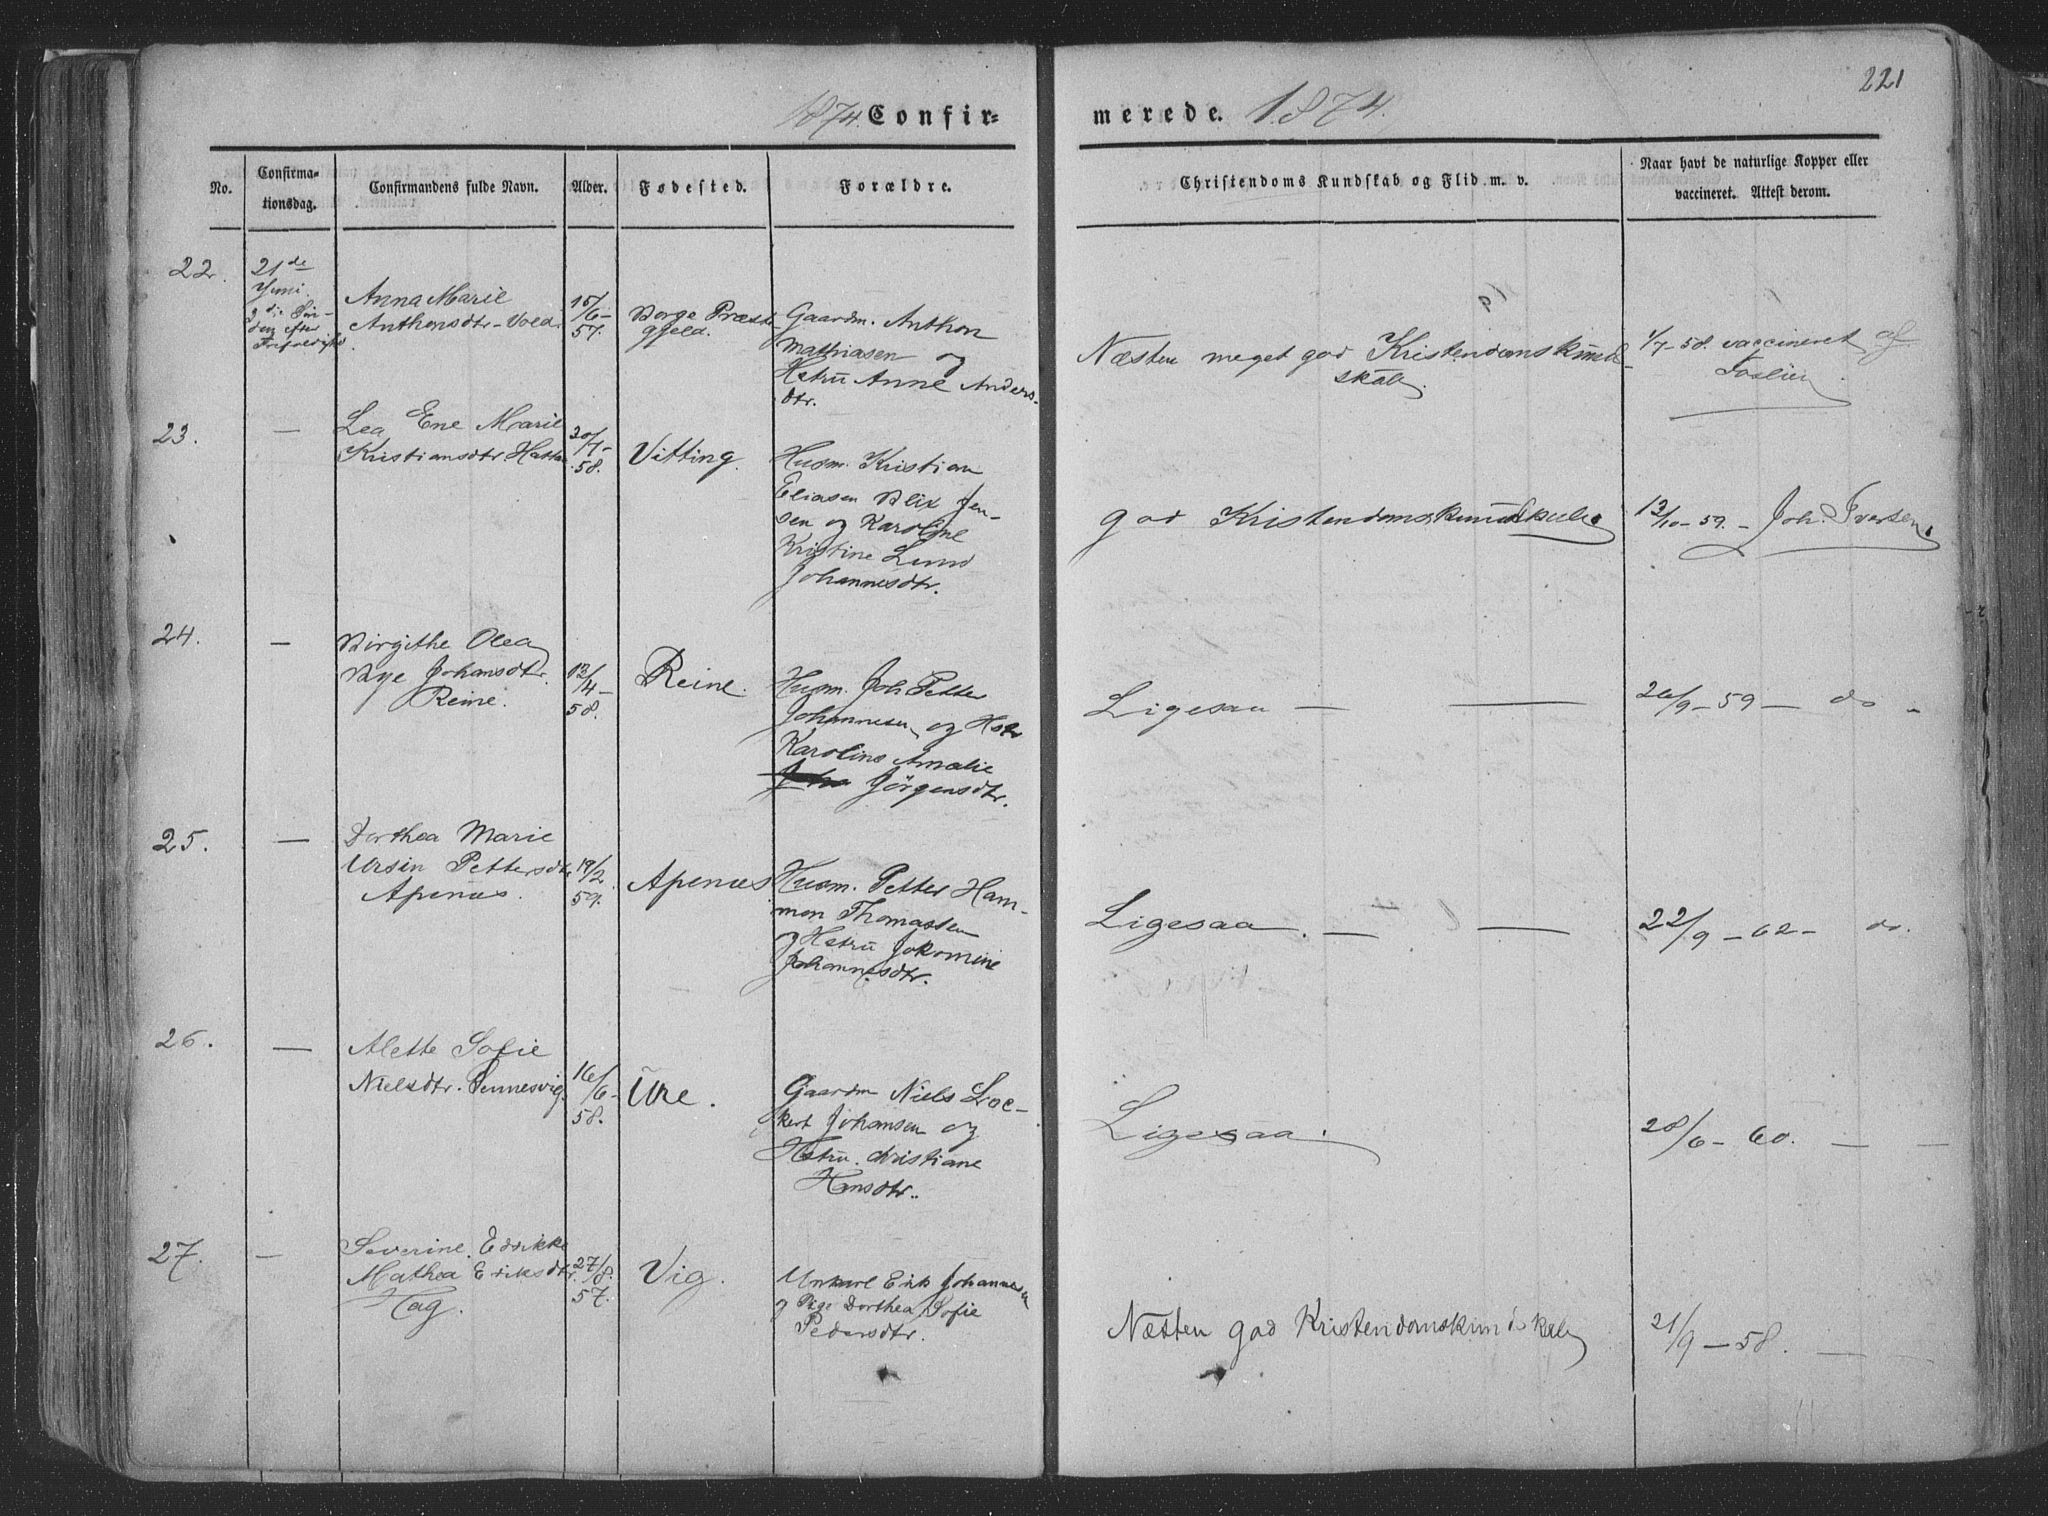 221
1874. Confir-
merede. 1874.
No.
Confirma-
tionsdag.
Confirmandens fulde Navn.
Alder.
Fødested.
Forældre.
Christendoms Kundskab og Flid m. v.
Naar havt de naturlige Kopper eller
vaccineret. Attest derom.
22.
21de
Juni
3die Søn-
dag efter
Trefoldighd.
Anna Marie
Anthonsdtr. Vold.
15/6-
57.
Borge Præste-
gjeld.
Gaardm. Anthon
Mathiasen og
Hstru Anne Anders-
dtr.
Næsten meget god Kristendomskund-
skab.
1/7-58. vaccineret af
23.
—
Lea Ene Marie
Kristiansdtr
20/7-
58.
Vitting.
Husm. Kristian
Eliasen Blix Jen-
sen og Karoline
Kristine Lund
Johannesdtr.
god Kristendomskundskab.
13/10-59. - Joh. Iversen.
24.
—
Birgithe Olea
Bye Johansdtr.
Reine.
12/4-
58.
Reine.
Husm. Joh. Petter
Johannesen og Hstr
Karoline Amalie
Jörgensdtr.
Ligesaa — —
26/9-59 — do -
25.
—
Dorthea Marie
Ursin Pettersdtr
Apenæs.
19/2.
59.
Apenæs
Husm. Petter Ham-
mon Thomassen
og Hstru Jakomine
Johannesdtr.
Ligesaa. — —
22/9-62- do.
26.
—
Alette Sofie
Nielsdtr. Sennesvig.
16/6-
58.
Ure.
Gaardm Niels Loc-
kert Johansen og
Hstru. Kristiane
Hansdtr.
Ligesaa.
28/6-60. — —
27.
—
Severine Edrikke
Mathea Eriksdtr.
Hag.
27/8.
57.
Vig.
Unkarl Erik Johannesen
og Pige Dorthea Sofie
Pedersdtr.
Næsten god Kristendomskundskab
21/9-58. — —